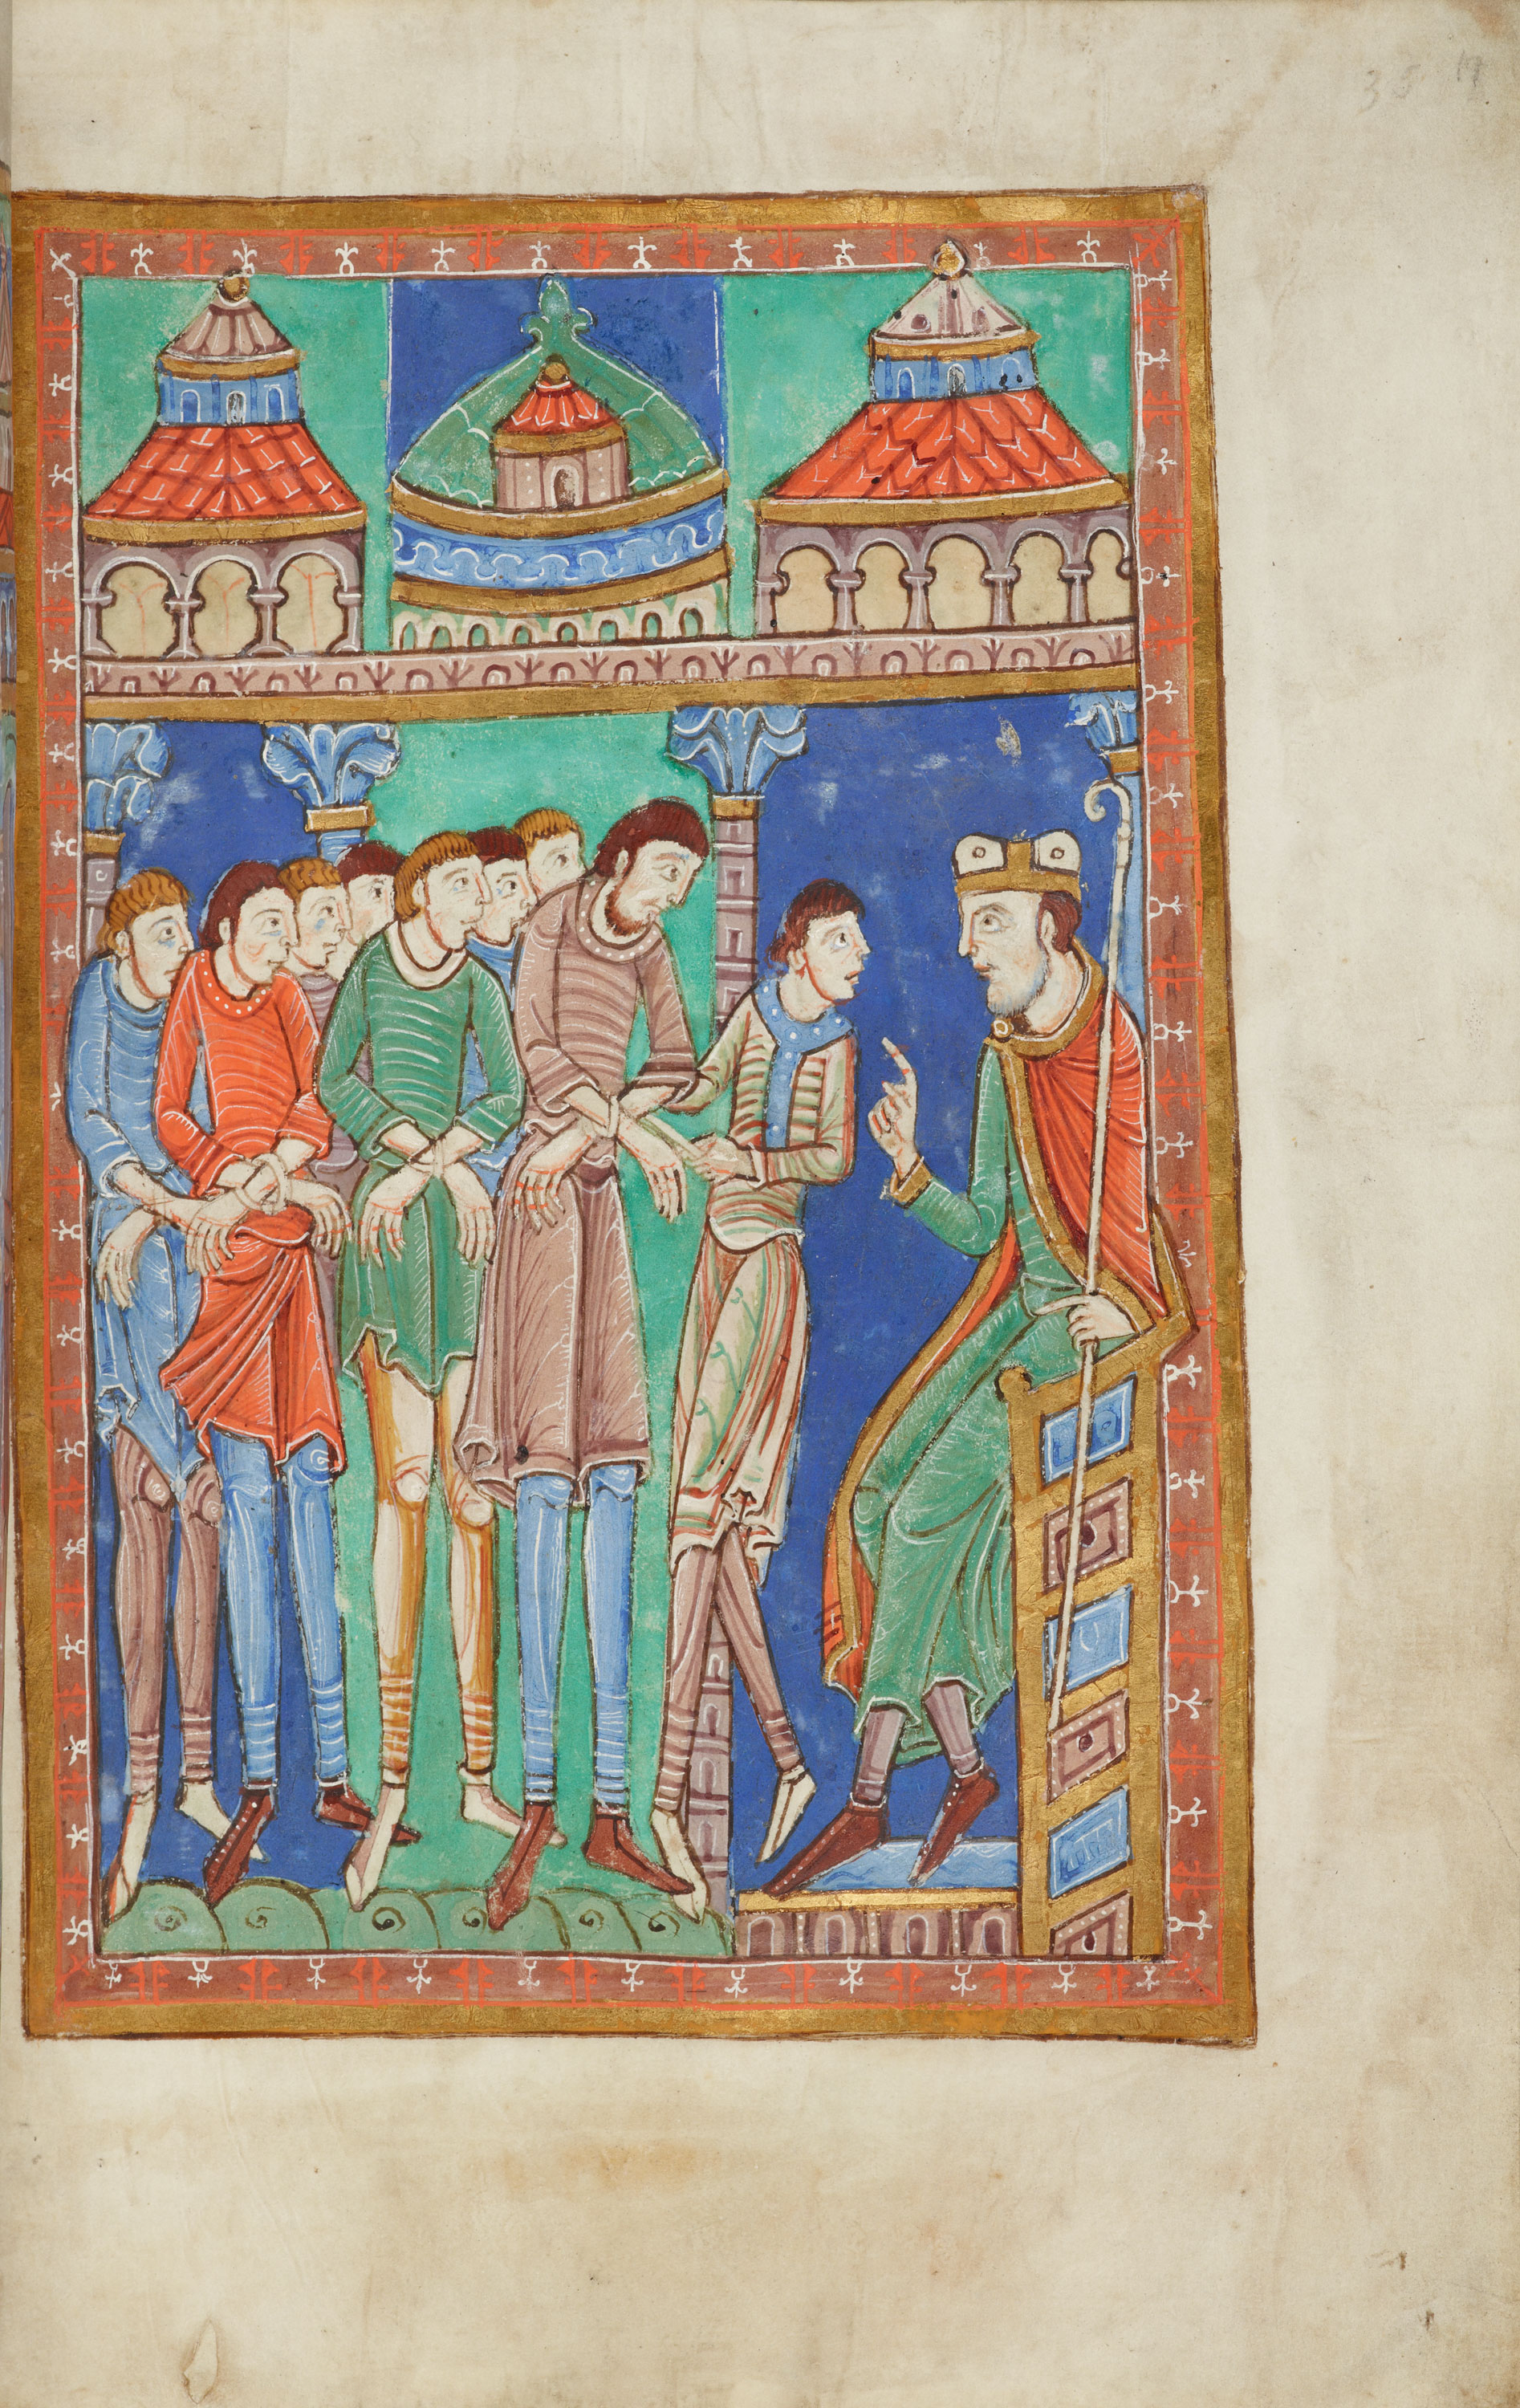 35 19